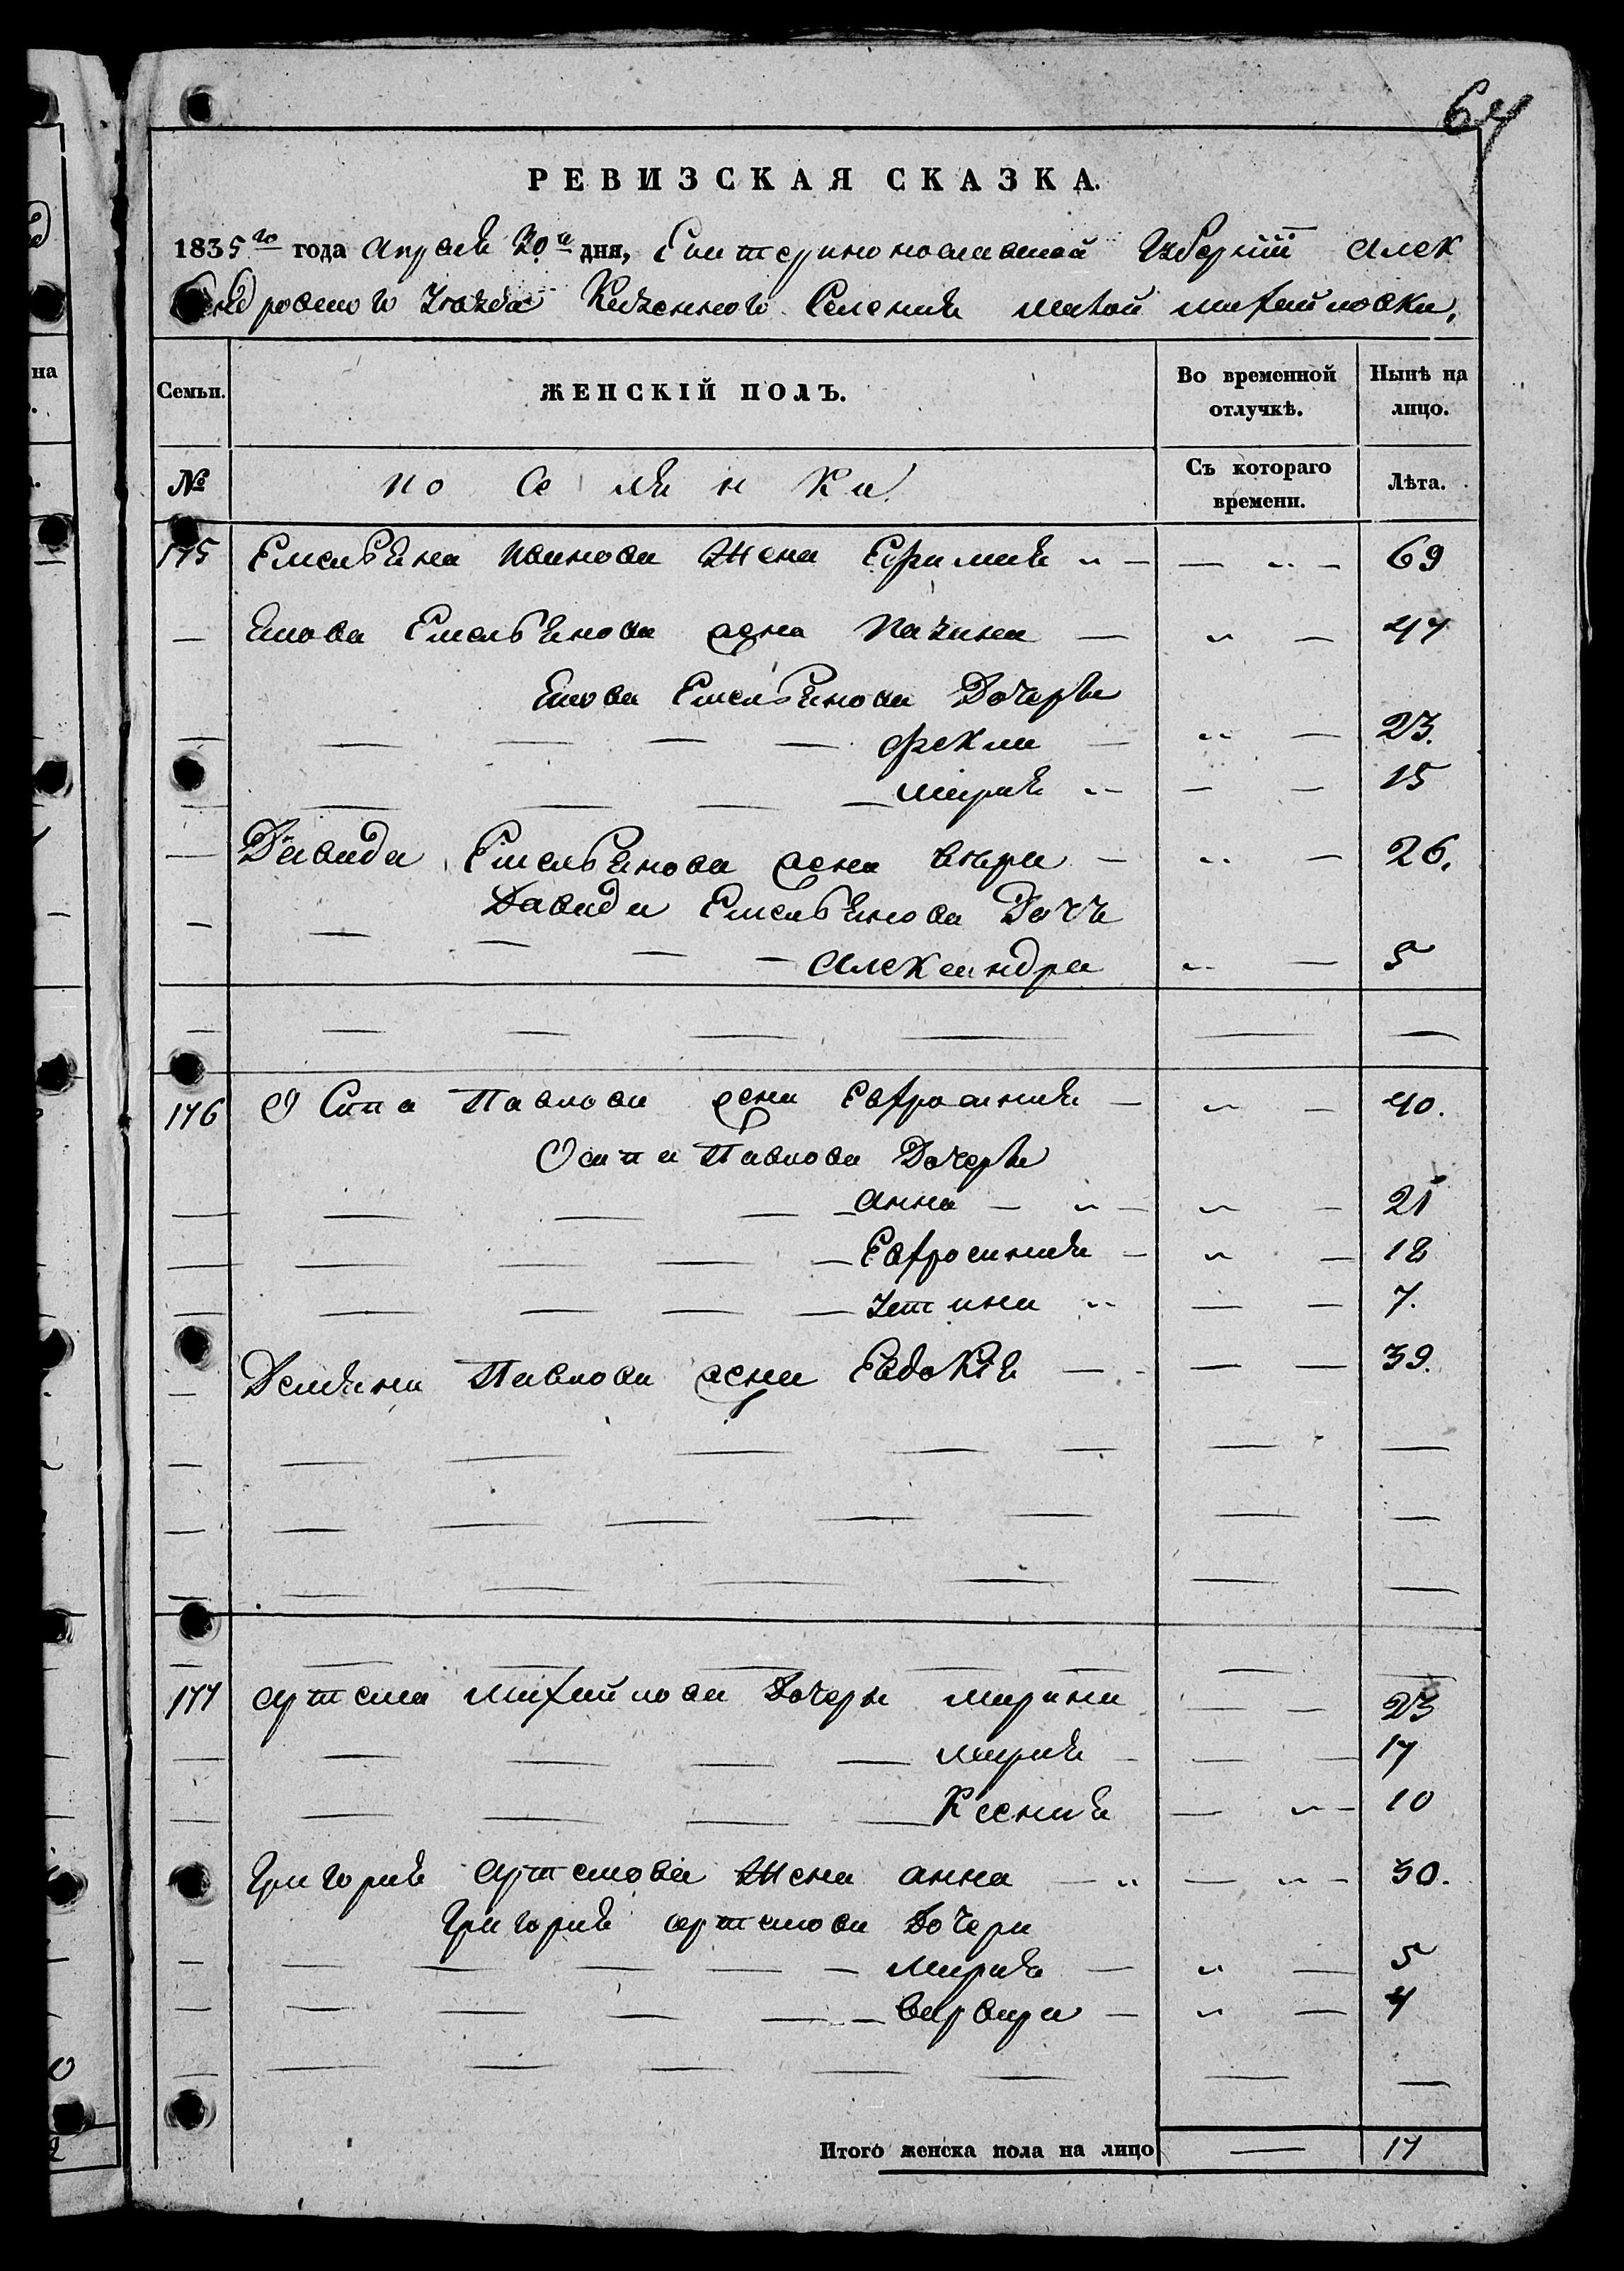 64
РЕВИЗСКАЯ СКАЗКА.
1835го года Апреля 20го дня, Екатеринославской Губернiи Алек
сандровского уезда Казенного Селения малой михайловки,
на
Семьи. ЖЕНСКIЙ ПОЛЪ. Во временной отлучкѣ. Нынѣ на лицо.
№ поселянки Съ котораго времени. Лѣта.
175 Емельяна Иванова Жена Ефимия " — — " — 69
— Якова Емельянова жена — " — 47
Якова Емельянова Дочеря
— — — — — Фекла — " — 23.
— — — — — мария " — — 15
— Давида Емельянова жена вера — " — 26.
Давида Емельянова Дочь
— — — — — Александра " — 5
— — — — — — —
176 Осипа Павлова жена Евфросиния — " — 40.
Осипа Павлова Дочеря
— — — — — Анна — " — " — 21
— — — — — Евфросиния — " — 18
— — — — — " — — 7.
— Демяна Павлова жена Евдокiя — - — — 39.
— — — — — — —
— — — — — — — —
— — — — — — —
— — — — — — — —
177 Артема михайлова Дочери марина — — 23
— — — — — мария — — — 17
— — — — — Ксения — " — 10
Григория Артемова Жена анна — " — " — 30.
Григория артемова Дочери
— — — — — — Мария — " — 5
— — — — — варвара — " — 4
— — — — — — — —
Итого женска пола на лицо — 17